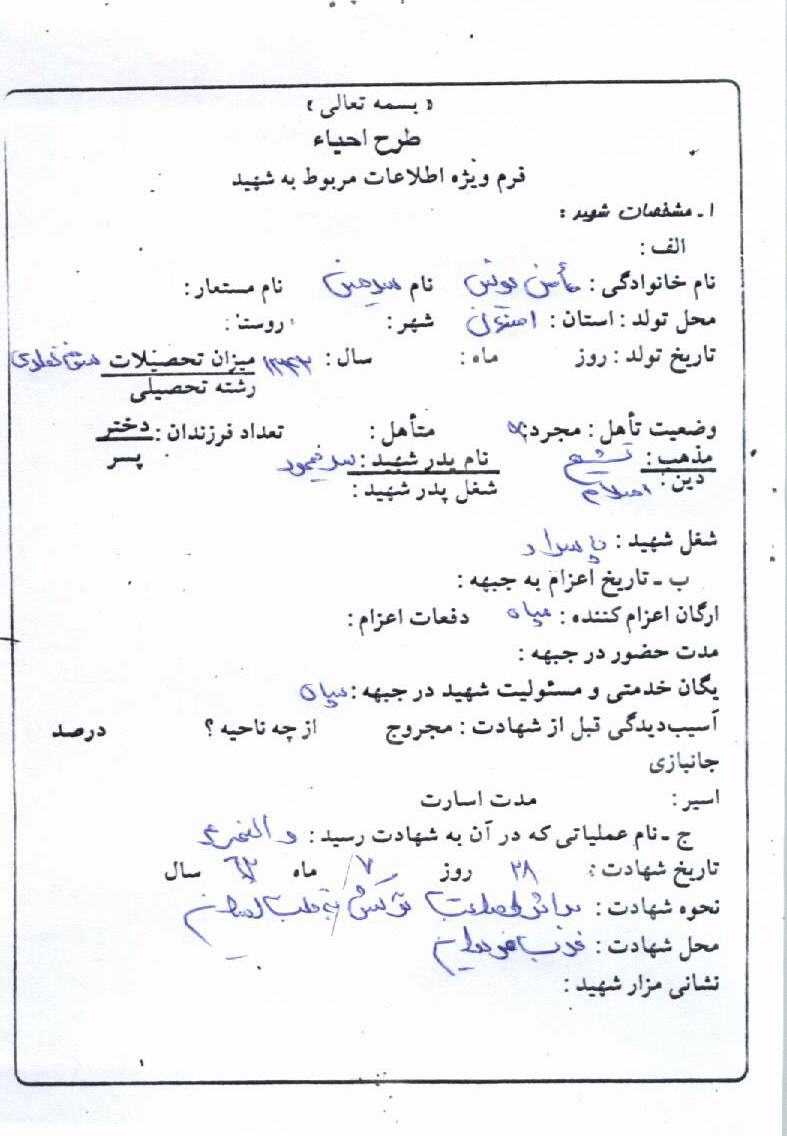 « بسمه تعالی »
طرح احیاء
فرم ویژه اطلاعات مربوط به شهید
۱ ـ مشخصات شهید :
الف :
نام خانوادگی : نام نام مستعار :
محل تولد : استان : اصفهان شهر : روستا :
تاریخ تولد : روز ماه : سال : ۱۳۴۳ میزان تحصیلات
رشته تحصیلی
وضعیت تأهل : مجرد : متأهل : تعداد فرزندان : دختر
پسر
مذهب : تشیع نام پدر شهید :
دین : اسلام شغل پدر شهید :
شغل شهید : پاسدار
ب ـ تاریخ اعزام به جبهه :
ارگان اعزام کننده : سپاه دفعات اعزام :
مدت حضور در جبهه :
یگان خدمتی و مسئولیت شهید در جبهه : سپاه
آسیب‌دیدگی قبل از شهادت : مجروح از چه ناحیه ؟ درصد
جانبازی
اسیر : مدت اسارت
ج ـ نام عملیاتی که در آن به شهادت رسید : والفجر
تاریخ شهادت : ۲۸ روز ۷ ماه ۶۳ سال
نحوه شهادت : بر اثر اصابت ترکش به
محل شهادت :
نشانی مزار شهید :